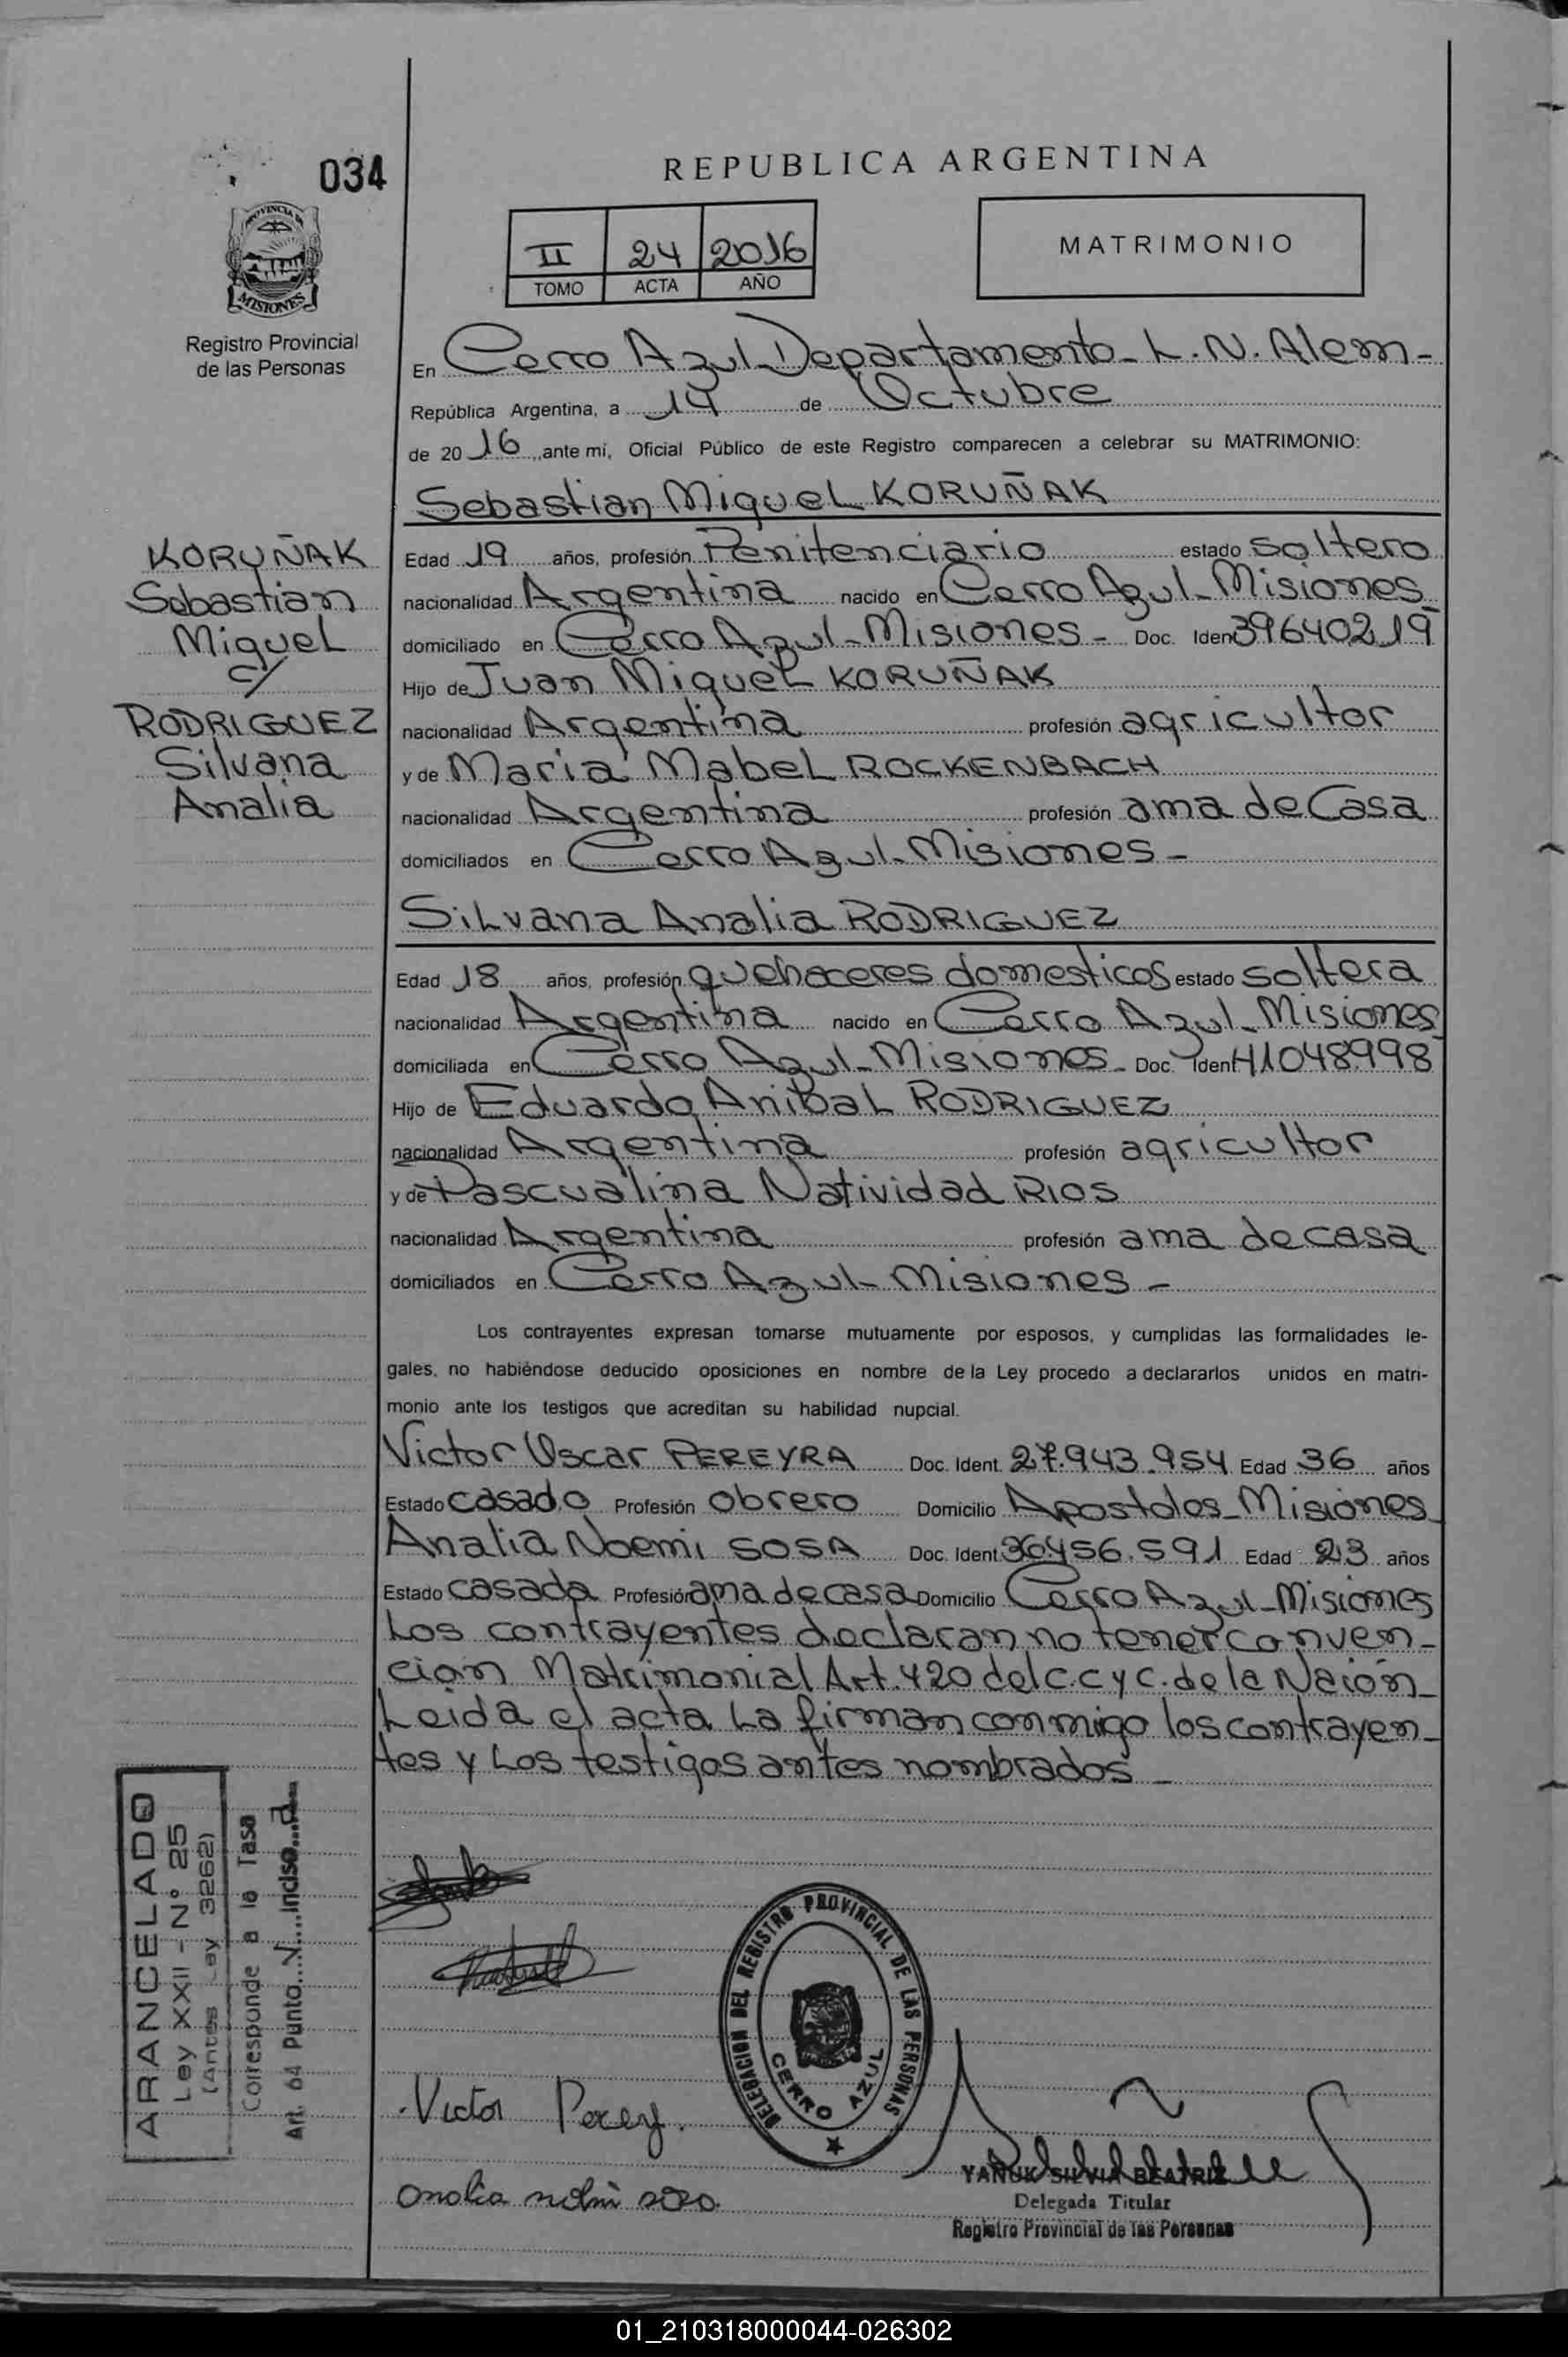 034
REPUBLICA ARGENTINA
PROVINCIA DE
MISIONES
Registro Provincial
de las Personas
II 24 2016
TOMO ACTA AÑO
MATRIMONIO
En Cerro Azul Departamento - L. N. Alem -
República Argentina, a 14 de Octubre
de 2016, ante mí, Oficial Público de este Registro comparecen a celebrar su MATRIMONIO:
Sebastian Miguel KORUÑAK
KORUÑAK
Sebastian
Miguel
c/
RODRIGUEZ
Silvana
Analia
Edad 19 años, profesión Penitenciario estado soltero
nacionalidad Argentina nacido en Cerro Azul - Misiones -
domiciliado en Cerro Azul - Misiones - Doc. Iden 39640219
Hijo de Juan Miguel KORUÑAK
nacionalidad Argentina profesión agricultor
y de Maria Mabel ROCKENBACH
nacionalidad Argentina profesión ama de Casa
domiciliados en Cerro Azul - Misiones -
Silvana Analia RODRIGUEZ
Edad 18 años, profesión quehaceres domesticos estado soltera
nacionalidad Argentina nacido en Cerro Azul - Misiones
domiciliada en Cerro Azul - Misiones - Doc. Ident 41048998
Hijo de Eduardo Anibal RODRIGUEZ
nacionalidad Argentina profesión agricultor
y de Pascualina Natividad RIOS
nacionalidad Argentina profesión ama de casa
domiciliados en Cerro Azul - Misiones -
Los contrayentes expresan tomarse mutuamente por esposos, y cumplidas las formalidades le-
gales, no habiéndose deducido oposiciones en nombre de la Ley procedo a declararlos unidos en matri-
monio ante los testigos que acreditan su habilidad nupcial.
Victor Oscar PEREYRA Doc. Ident. 27.943.954 Edad 36 años
Estado casado Profesión obrero Domicilio Apostoles - Misiones
Analia Noemi SOSA Doc. Ident. 36.456.591 Edad 23 años
Estado casada Profesión ama de casa Domicilio Cerro Azul - Misiones
Los contrayentes declaran no tener conven-
cion Matrimonial Art. 420 del C.C y C. de la Naión -
Leida el acta La firman conmigo los contrayen-
tes y Los testigos antes nombrados -
ARANCELADO
Ley XXII - N° 25
(Antes Ley 3262)
Corresponde a la Tasa
Art. 64 Punto...1...Inciso...a...
DELEGACION DEL REGISTRO PROVINCIAL DE LAS PERSONAS
CERRO AZUL
Victor Perey.
YAÑUK SILVIA BEATRIZ
Delegada Titular
Registro Provincial de las Personas
01_210318000044-026302